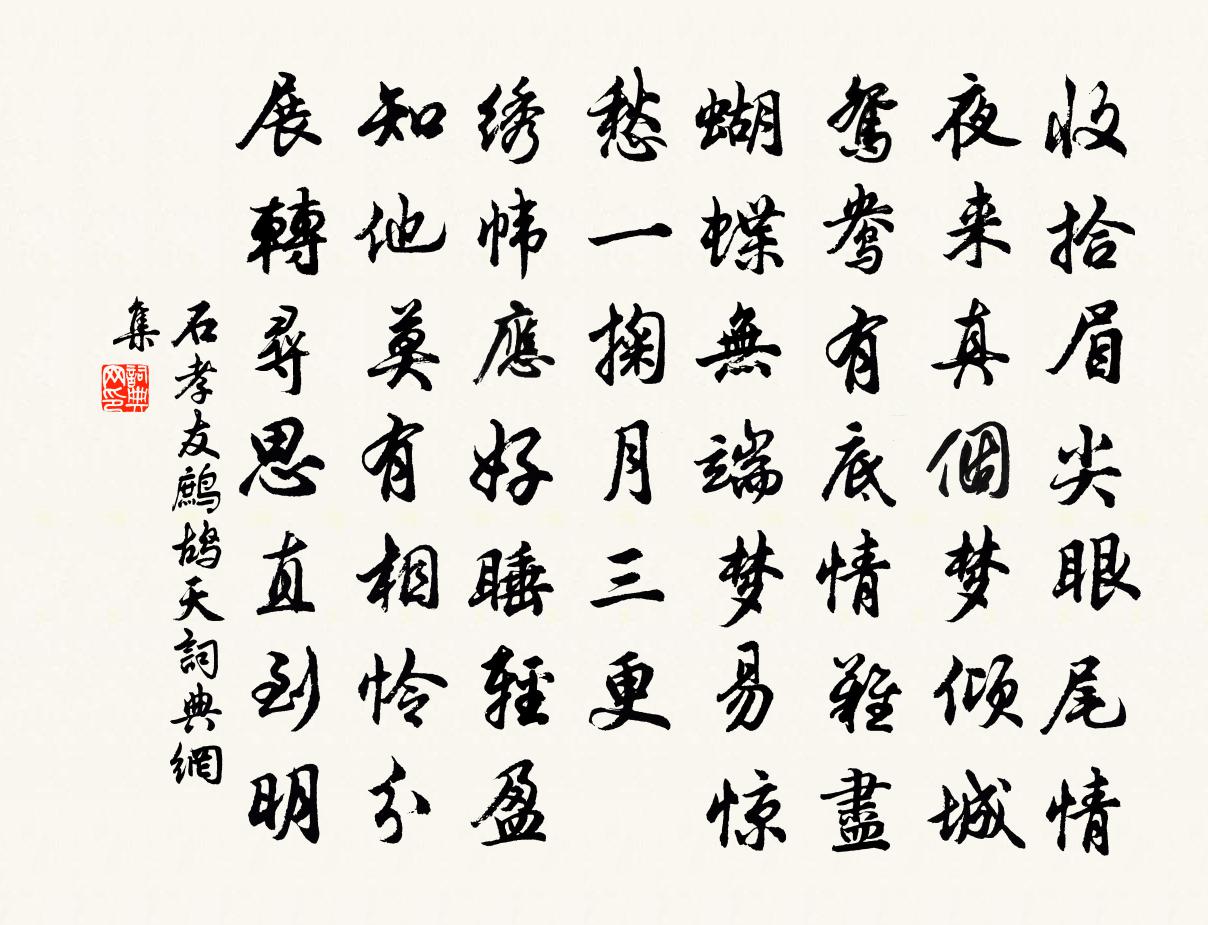 收拾眉尖眼尾情
夜来真個梦倾城
鴛鴦有底情難盡
蝴蝶無端梦易惊
愁一掬月三更
绣帏應好睡輕盈
知他莫有相怜分
展轉尋思直到明
石孝友鷓鴣天詞典網
集
詞典网印